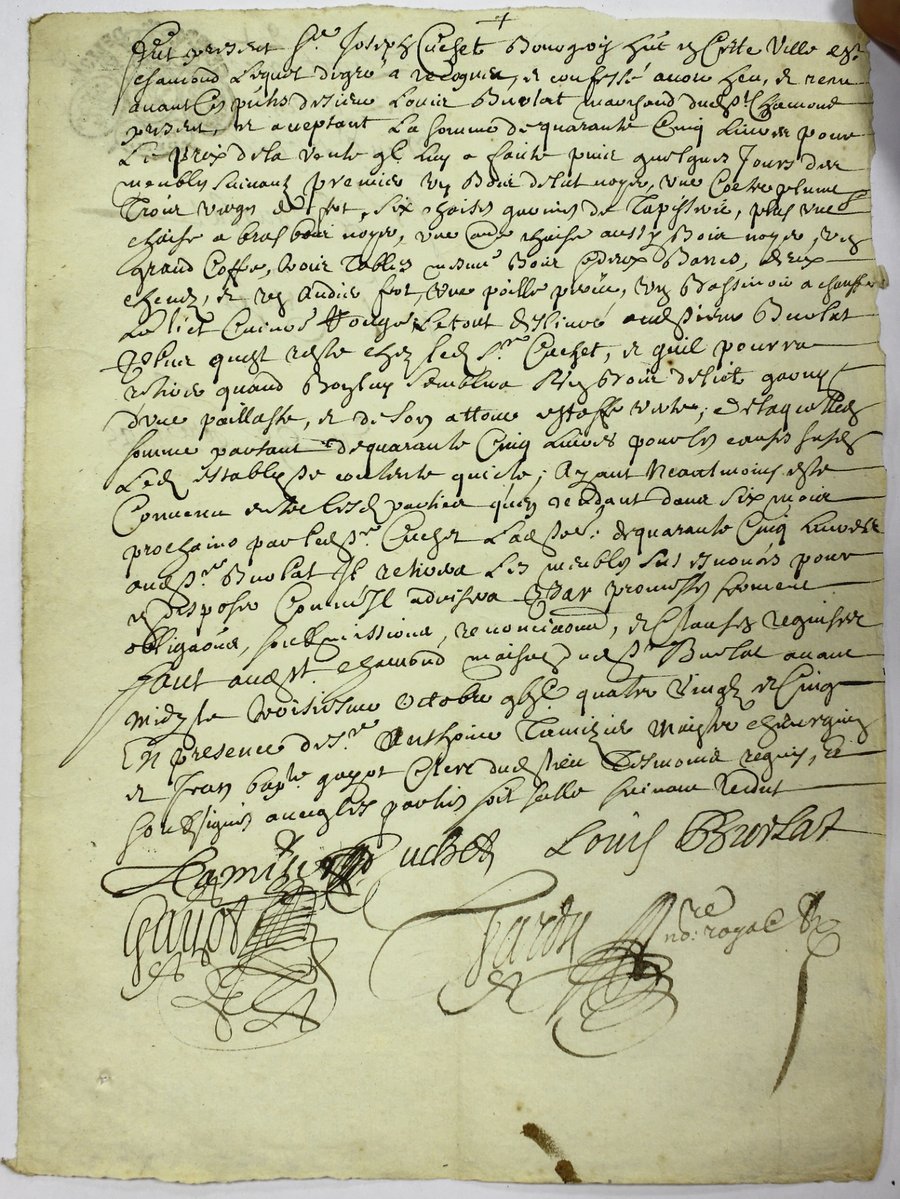 +
Fut present Sr Joseph Cuchet Bourgois hãt en Cette Ville de St
chamond Lequel de gré a recogneu, et confessé avoir heu, et receu
avant Ces pñtes de sieur Louis Burlat marchand dud St Chamond
present, et aceptant La somme de quarante Cinq Livres pour
Le Prix de la vente ql luy a faitte puis quelques Jours des
meubles suivant premier un Bois de lict noyer, une Coetre plume
Trois verges de fer, six chaises garnies de Tapisserie, plus une
chaise a bras bois noyer, une chaise aussy Bois noyer, un
grand Coffre, trois Tables mesme Bois et deux Bancs, deux
chenes, et un Andier fer, une poille, un Bassinoir a chauffer
Le lict Cuivre Rouge, Le tout deslivré aud sieur Burlat
quest resté chez led Sr Cuchet, et quil pourra
retirer quand Bon luy semblera Un Bois de lict garny
dune paillasse, et de son attour estoffe verte; de laquelle
somme partant de quarante Cinq Livres pour les causes susd
Led establi se contente quicte; Ayant Neantmoins esté
Convenu entre lesd parties quen rendant dans six mois
prochains par led Sr Cuchet Lad so.e de quarante Cinq Livres
aud Sr Burlat Il retirera Les meubles sus enoncés pour
en disposer Comme Il advisera Par promesses serment
obligaõns, soubmissions, renonciaõns, et Clauses requises
Fait aud St chamond maison dud Sr Burlat avant
midy le troisiesme Octobre gbic quatre vingt et Cinq
En presence de sr Anthoine Tamizier Maistre chirurgien
et Jean bapte gayot Clerc dud lieu Tesmoins requis, et
soubsignés avec les parties soit seellé suivant l'edict
Tamizier Cuchet Louis Burlat
Gayot
Hardy nore royal